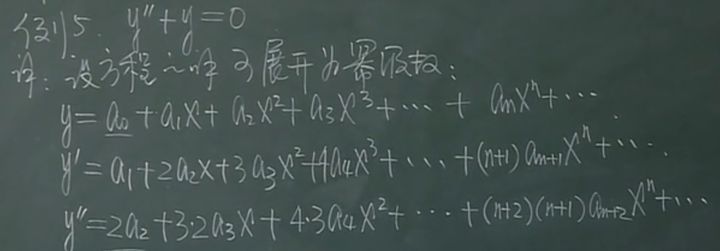 例5. y''+y=0
解: 设方程的解可展开为幂级数:
y=a₀+a₁x+a₂x²+a₃x³+⋯+aₙxⁿ+⋯
y'=a₁+2a₂x+3a₃x²+4a₄x³+⋯+(n+1)aₙ₊₁xⁿ+⋯.
y''=2a₂+3·2a₃x+4·3a₄x²+⋯+(n+2)(n+1)aₙ₊₂xⁿ+⋯